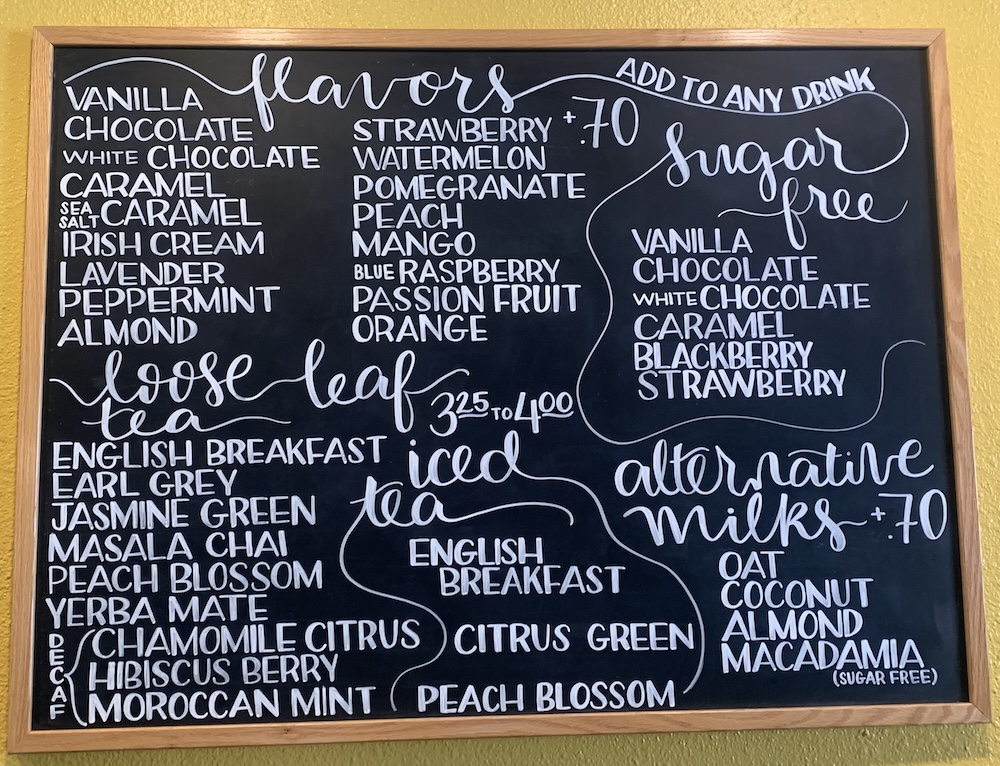 flavors
ADD TO ANY DRINK
+.70
VANILLA
CHOCOLATE
WHITE CHOCOLATE
CARAMEL
SEA SALT CARAMEL
IRISH CREAM
LAVENDER
PEPPERMINT
ALMOND
STRAWBERRY
WATERMELON
POMEGRANATE
PEACH
MANGO
BLUE RASPBERRY
PASSION FRUIT
ORANGE
sugar
free
VANILLA
CHOCOLATE
WHITE CHOCOLATE
CARAMEL
BLACKBERRY
STRAWBERRY
loose leaf
tea
3.25 TO 4.00
ENGLISH BREAKFAST
EARL GREY
JASMINE GREEN
MASALA CHAI
PEACH BLOSSOM
YERBA MATE
DECAF
CHAMOMILE CITRUS
HIBISCUS BERRY
MOROCCAN MINT
iced
tea
ENGLISH
BREAKFAST
CITRUS GREEN
PEACH BLOSSOM
alternative
milks +.70
OAT
COCONUT
ALMOND
MACADAMIA
(SUGAR FREE)